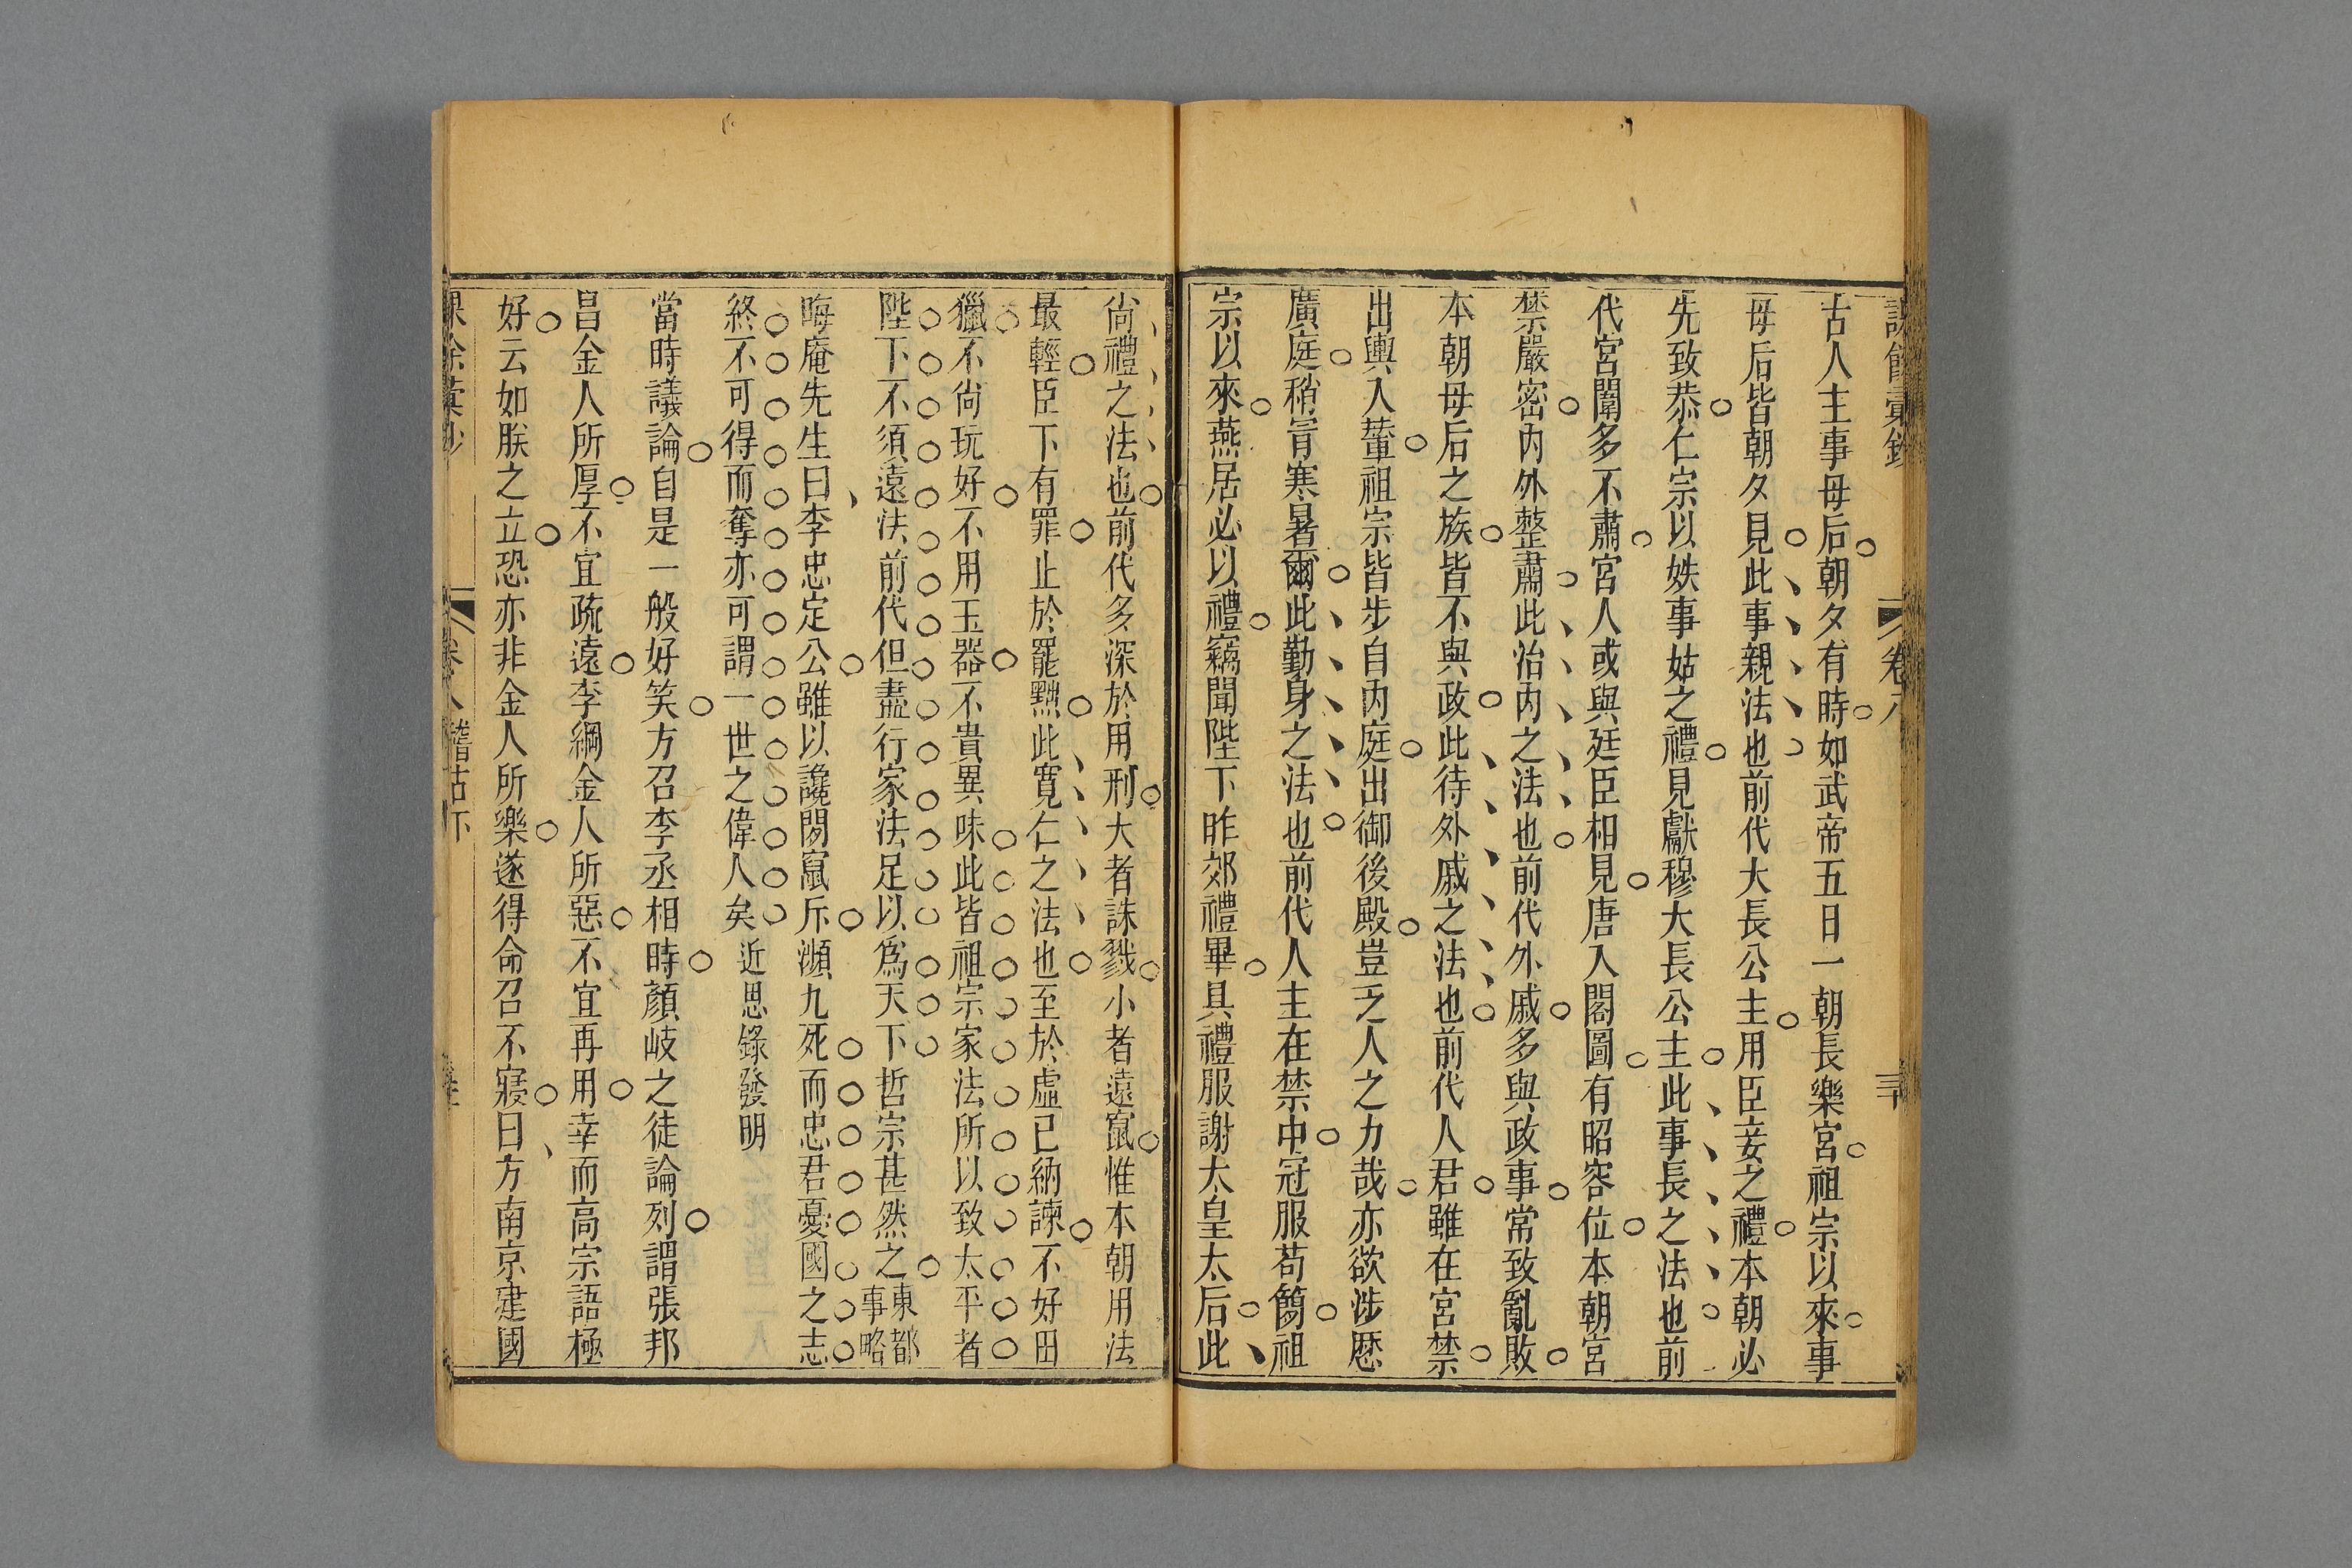 卷八
古人主事母后朝夕有時如武帝五日一朝長樂宮祖宗以來事
母后皆朝夕見此事親法也前代大長公主用臣妾之禮本朝必
先致恭仁宗以姪事姑之禮見獻穆大長公主此事長之法也前
代宮闈多不肅宮人或與廷臣相見唐入閣圖有昭容位本朝宮
禁嚴密內外整肅此治內之法也前代外戚多與政事常致亂敗
本朝母后之族皆不與政此待外戚之法也前代人君雖在宮禁
出輿入輦祖宗皆步自內庭出御後殿豈乏人之力哉亦欲涉歷
廣庭稍冐寒暑爾此勤身之法也前代人主在禁中冠服苟簡祖
宗以來燕居必以禮竊聞陛下昨郊禮畢具禮服謝太皇太后此
尚禮之法也前代多深於用刑大者誅戮小者遠竄惟本朝用法
最輕臣下有罪止於罷黜此寬仁之法也至於虛己納諫不好田
獵不尚玩好不用玉器不貴異味此皆祖宗家法所以致太平者
陛下不須遠法前代但盡行家法足以爲天下哲宗甚然之東都事略
晦庵先生曰李忠定公雖以讒閒竄斥瀕九死而忠君憂國之志
終不可得而奪亦可謂一世之偉人矣 近思錄發明
當時議論自是一般好笑方召李丞相時顏岐之徒論列謂張邦
昌金人所厚不宜疏遠李綱金人所惡不宜再用幸而高宗語極
好云如朕之立恐亦非金人所樂遂得命召不寢曰方南京建國
卷八 稽古下